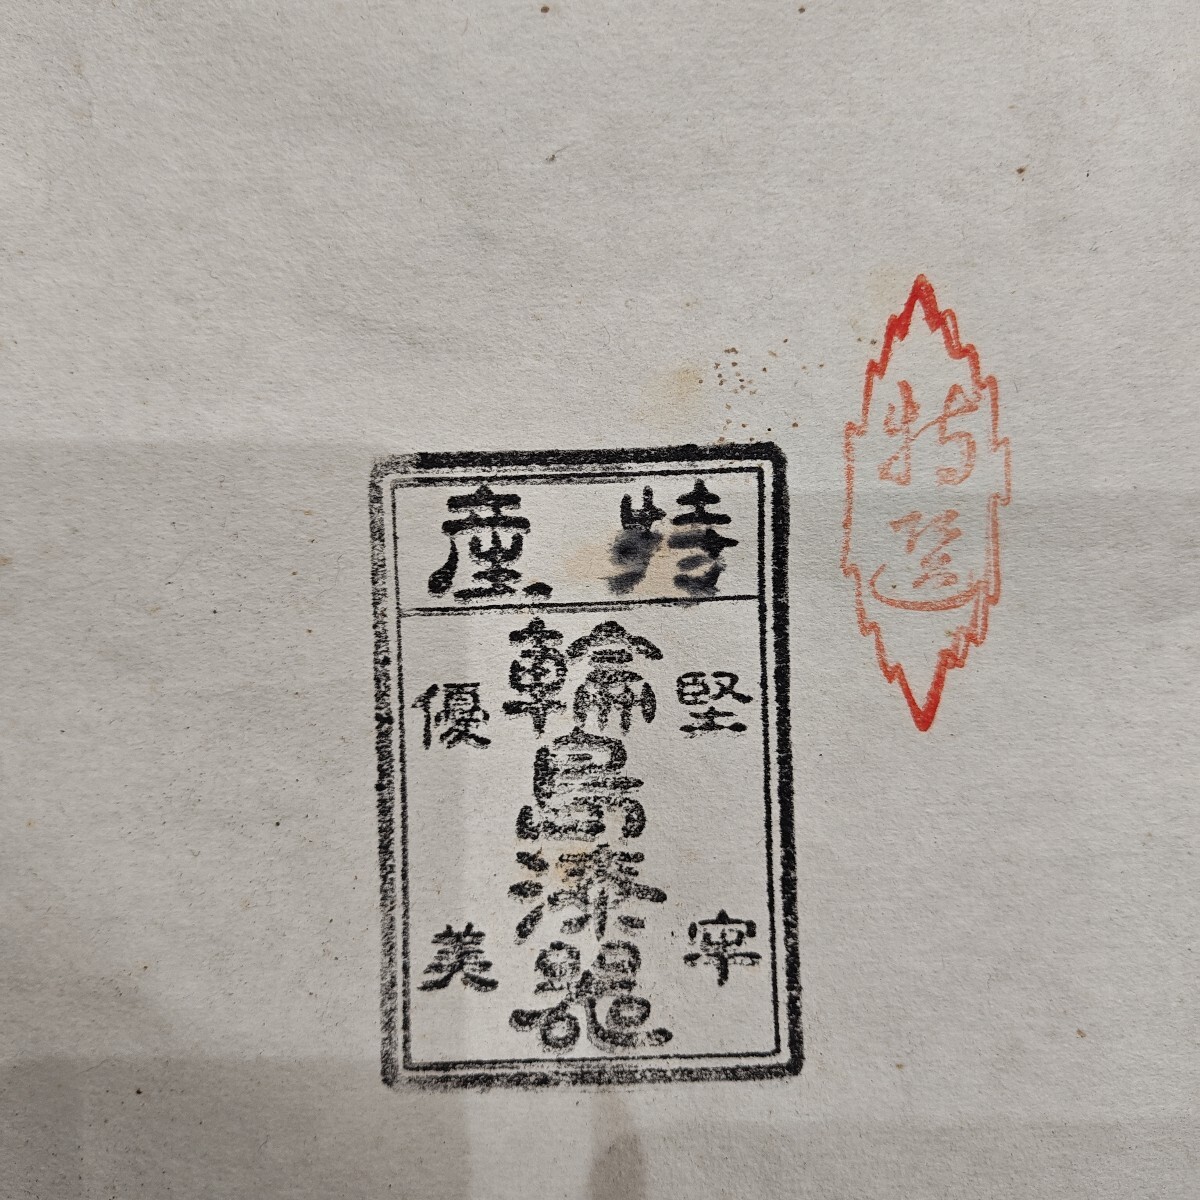 特選
特産
堅牢
輪島漆器
優美